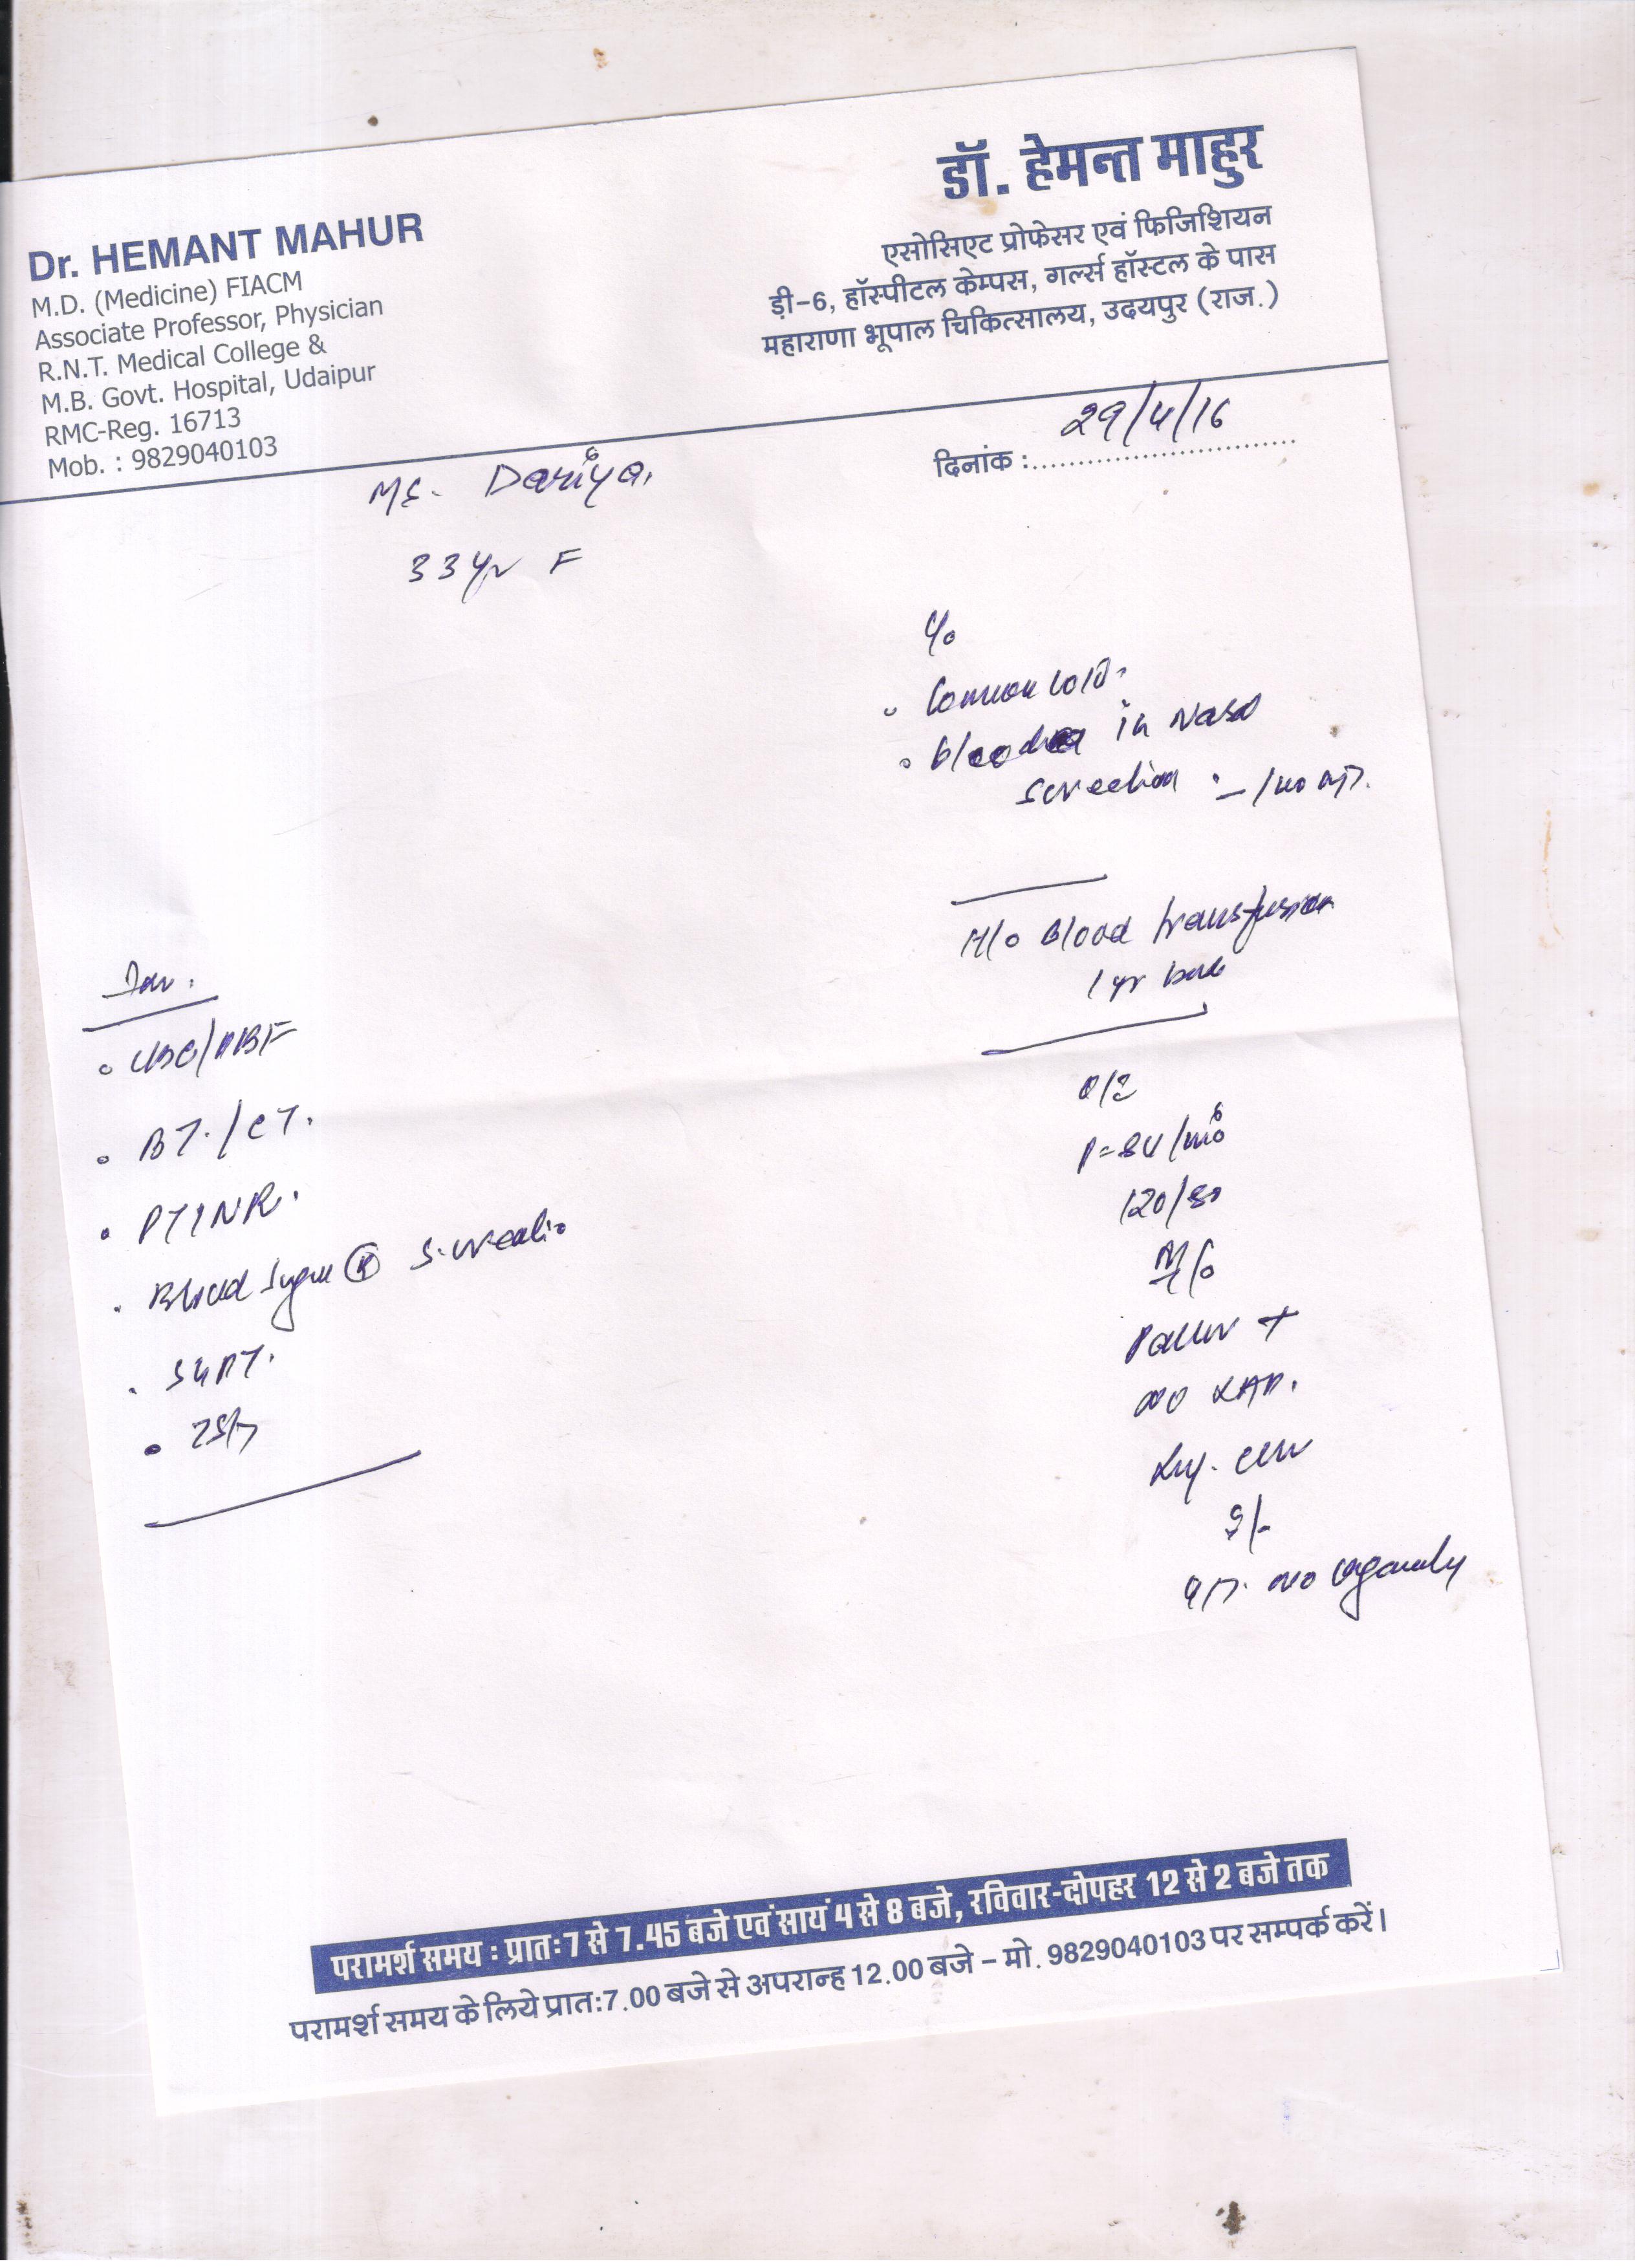 Dr. HEMANT MAHUR
M.D. (Medicine) FIACM
Associate Professor, Physician
R.N.T. Medical College &
M.B. Govt. Hospital, Udaipur
RMC-Reg. 16713
Mob. : 9829040103
डॉ. हेमन्त माहुर
एसोसिएट प्रोफेसर एवं फिजिशियन
ड़ी-6, हॉस्पीटल केम्पस, गर्ल्स हॉस्टल के पास
महाराणा भूपाल चिकित्सालय, उदयपुर (राज.)
दिनांक : 29/4/16
Dariya.
33 yr F
C/o
Common cold.
in Nasal
H/o Blood transfusion
1 yr back
O/E
P=84/min
120/80
Pallor +
No LAP.
Inv.
CBC/PBF
BT./CT.
PTINR.
Blood Sugar (R) S. creatin
SGPT.
परामर्श समय : प्रात: 7 से 7.45 बजे एवं सायं 4 से 8 बजे, रविवार-दोपहर 12 से 2 बजे तक
परामर्श समय के लिये प्रात:7.00 बजे से अपरान्ह 12.00 बजे – मो. 9829040103 पर सम्पर्क करें।